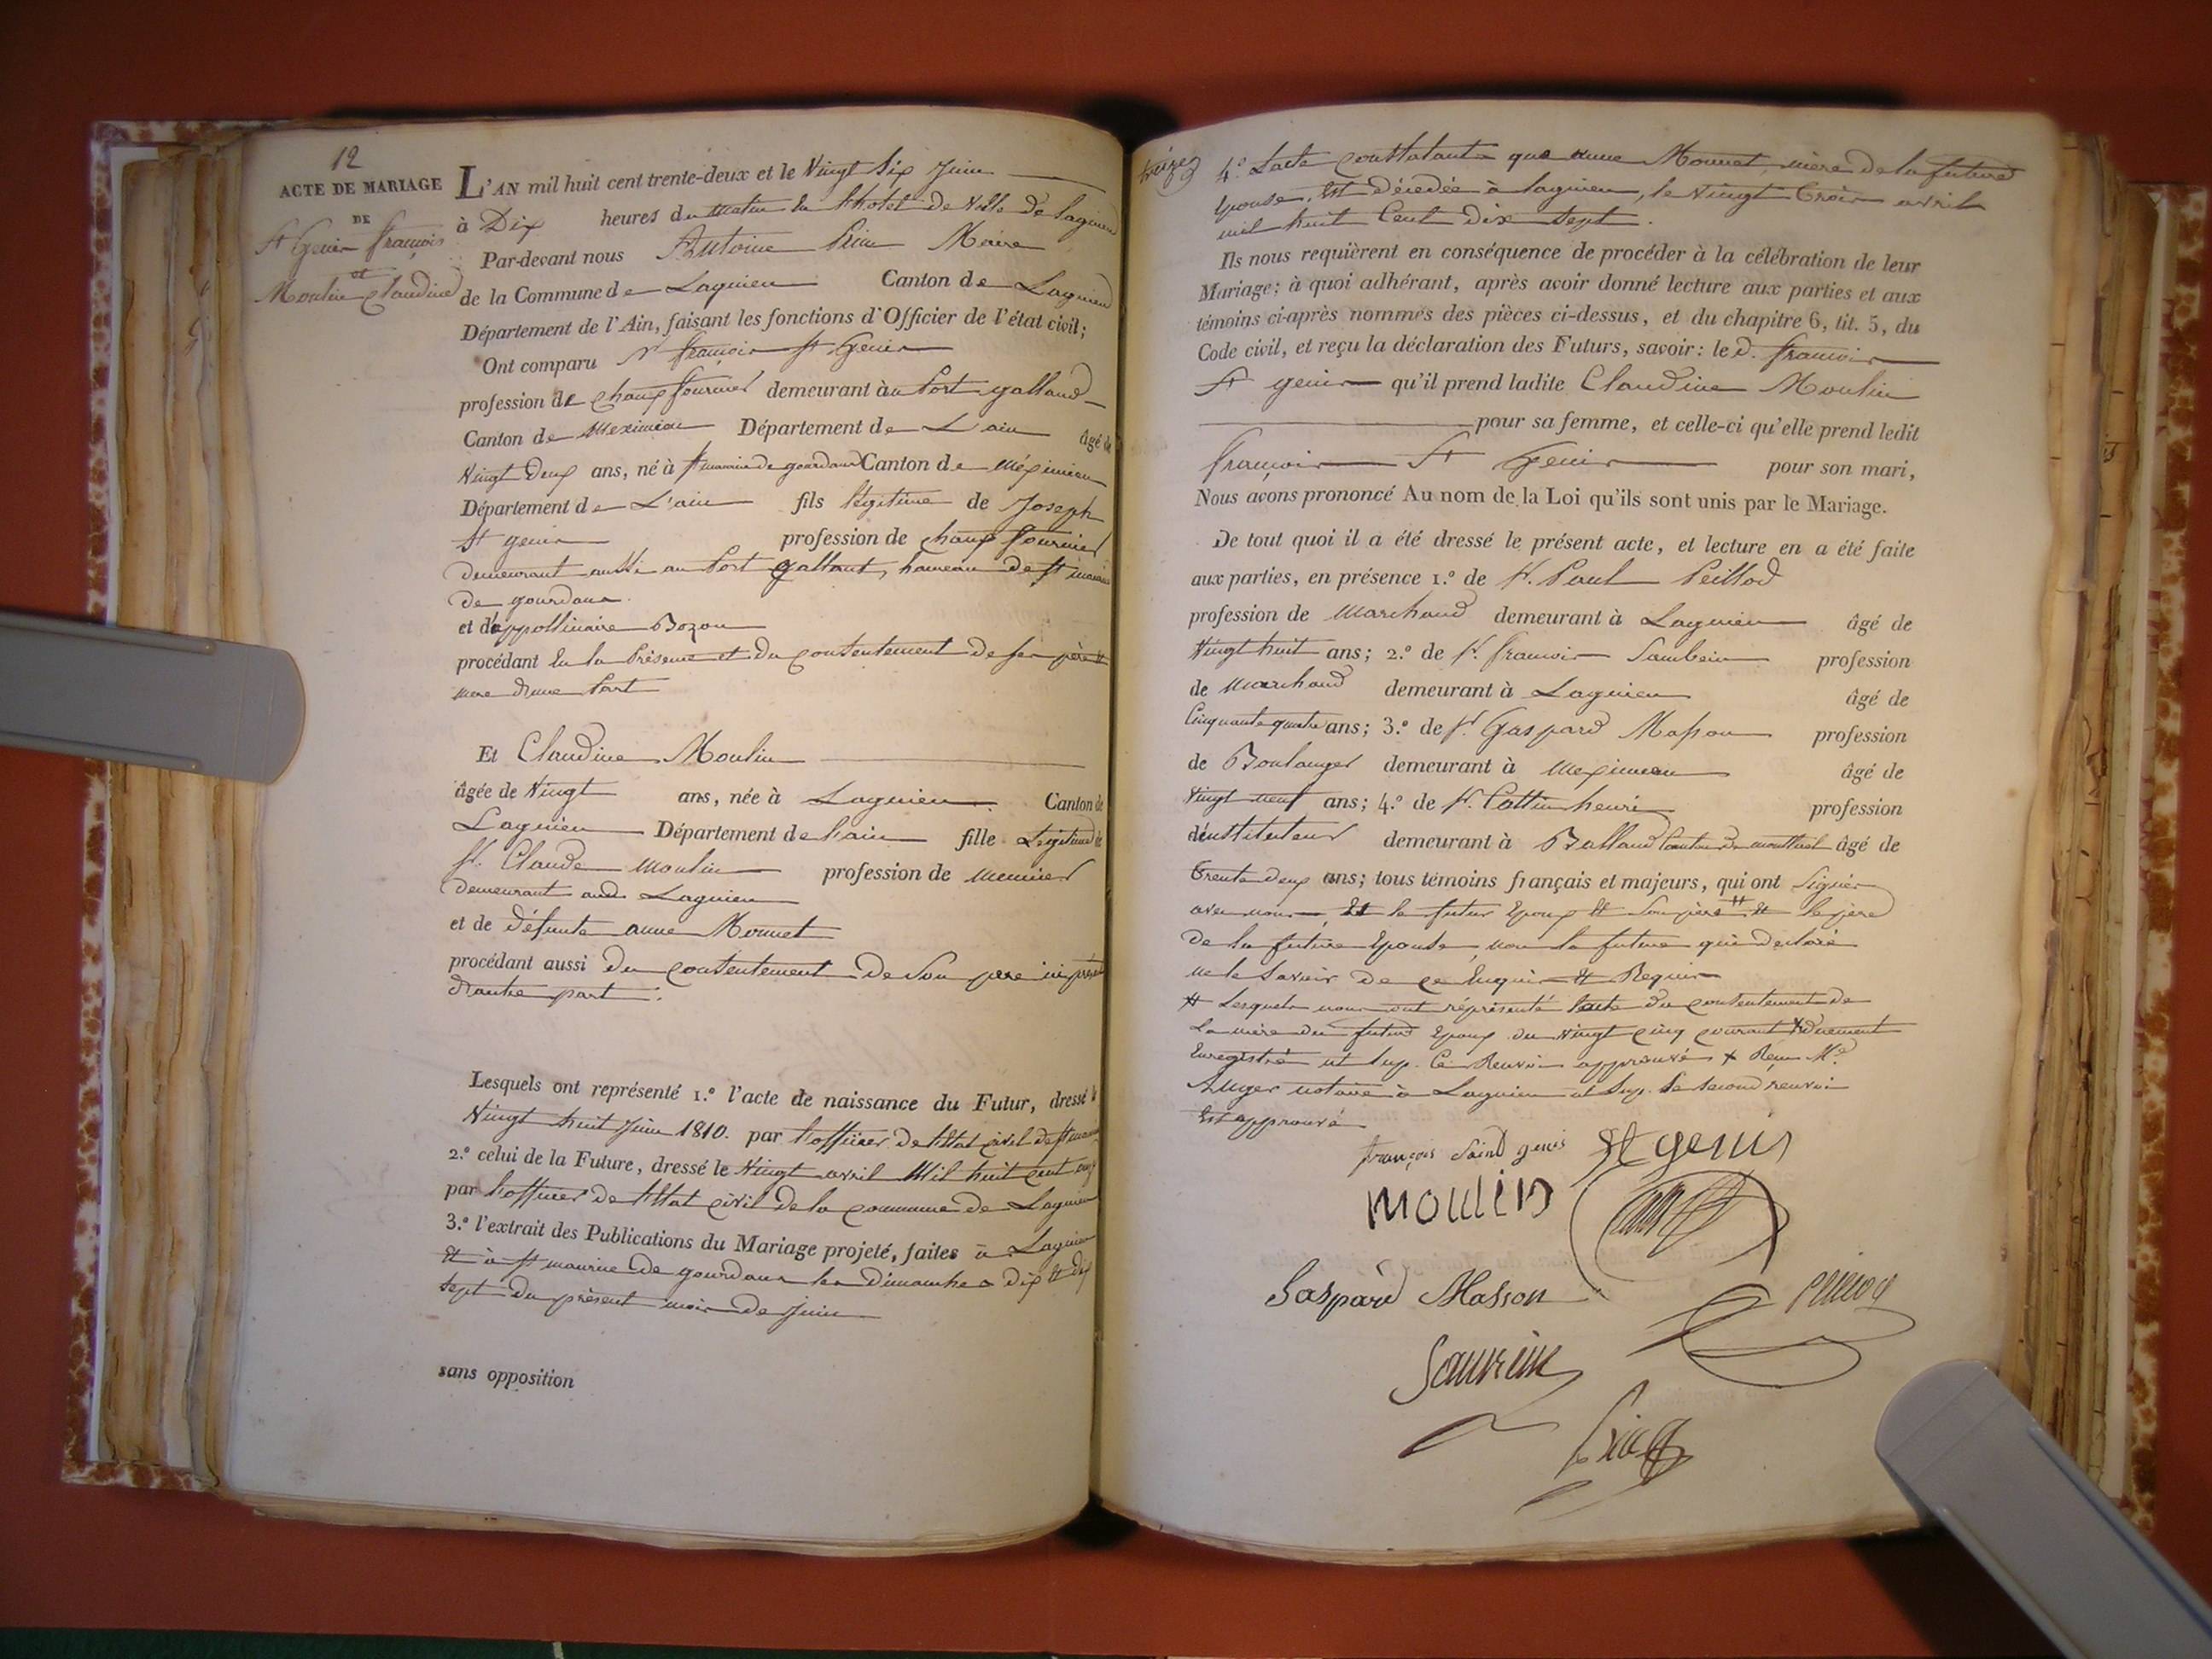 12
ACTE DE MARIAGE
DE
St Genis françois
et
Moulin Claudine
L'AN mil huit cent trente-deux et le Vingt Six Juin
à Dix heures du matin en l'hotel de Ville de lagnieu
Par-devant nous Antoine Maire
de la Commune de Lagnieu Canton de Lagnieu
Département de l'Ain, faisant les fonctions d'Officier de l'état civil;
Ont comparu Sr françois St Genis
profession de chaux fournier demeurant au Port galland
Canton de Meximieu Département de L'ain âgé de
Vingt Deux ans, né à St maurice de gourdans Canton de Méximieu
Département de L'ain fils légitime de Joseph
St genis profession de chaux fournier
demeurant aussi au Port galland, hameau de St maurice
de gourdans
et d'appollinaire Bozon
procédant En la Présence et du consentement de ses père et
mere d'une Part
Et Claudine Moulin
âgée de Vingt ans, née à Lagnieu Canton de
Lagnieu Département de l'ain fille Légitime de
Sr. Claude Moulin profession de Meunier
demeurant aud. Lagnieu
et de défunte anne Monnet
procédant aussi du consentement de Son pere ici présent
d'autre part.
Lesquels ont représenté 1.º l'acte de naissance du Futur, dressé le
Vingt huit Juin 1810. par l'officier de l'Etat civil de St maurice
2.º celui de la Future, dressé le Vingt avril Mil huit cent
par l'officier de l'Etat civil de la commune de Lagnieu
3.º l'extrait des Publications du Mariage projeté, faites à Lagnieu
Et à St maurice de gourdans les Dimanches dix Et dix
sept du présent mois de Juin
sans opposition
treize
4.º L'acte constatant que anne Monnet, mère de la future
épouse, est décédée à lagnieu, le Vingt trois avril
mil huit Cent dix sept.
Ils nous requièrent en conséquence de procéder à la célébration de leur
Mariage; à quoi adhérant, après avoir donné lecture aux parties et aux
témoins ci-après nommés des pièces ci-dessus, et du chapitre 6, tit. 5, du
Code civil, et reçu la déclaration des Futurs, savoir: le d. françois
St genis qu'il prend ladite Claudine Moulin
pour sa femme, et celle-ci qu'elle prend ledit
françois St Genis pour son mari,
Nous avons prononcé Au nom de la Loi qu'ils sont unis par le Mariage.
De tout quoi il a été dressé le présent acte, et lecture en a été faite
aux parties, en présence 1.º de Sr. Paul Peillod
profession de Marchand demeurant à Lagnieu âgé de
Vingt huit ans; 2.º de Sr. françois profession
de Marchand demeurant à Lagnieu âgé de
Cinquante quatre ans; 3.º de Sr. Gaspard Masson profession
de Boulanger demeurant à Meximieu âgé de
Vingt neuf ans; 4.º de Sr. Cottin henri profession
d'instituteur demeurant à Balland Canton de montluel âgé de
Trente deux ans; tous témoins français et majeurs, qui ont Signés
avec nous, Et le futur Epoux Et Son père # Et le père
de la future Epouse, non la future qui a déclaré
ne le Savoir de ce Enquis Et Requis
# Lesquels nous ont représenté l'acte du consentement de
La mère du futur Epoux du Vingt cinq courant x duement
Enregistré ut Sup. Ce Renvoi approuvé x Reçu Me
Auger notaire à Lagnieu ut Sup. le second renvoi
Est approuvé
françois Saint genis St genis
moulin
Gaspard Masson
Peillod
Saurin